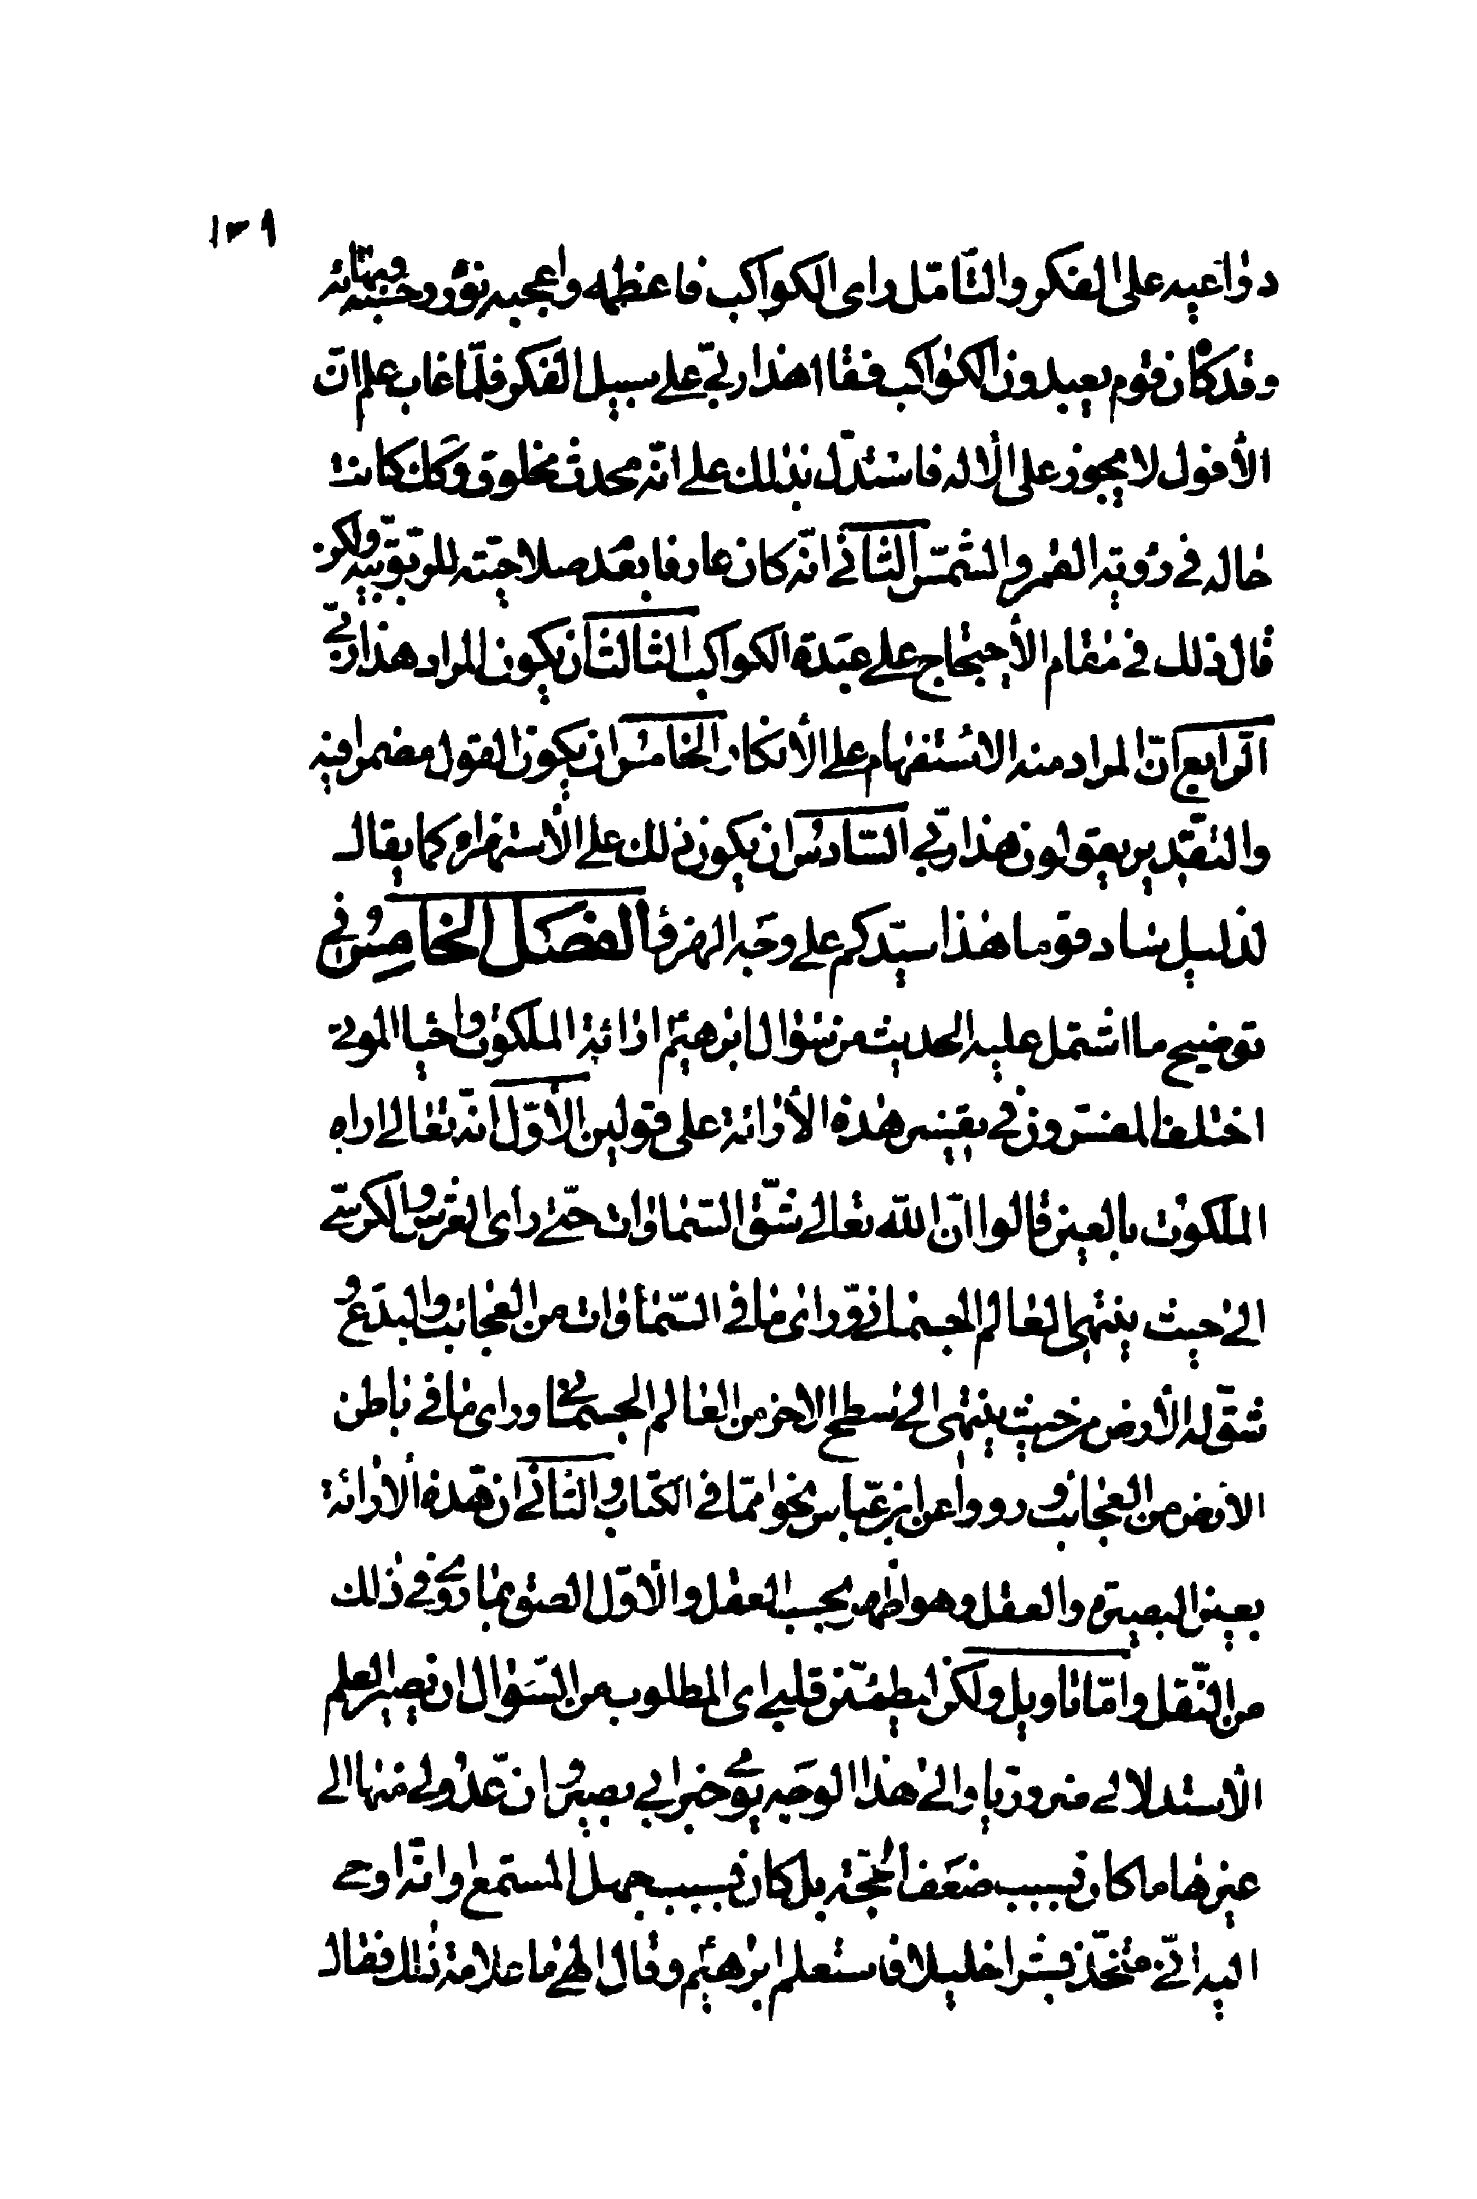 ١٣٩
دواعيه على الفكر والتأمّل راى الكواكب فاعظمه واعجبه نوره وحسنه وبهائه
وقد كان قوم يعبدون الكواكب فقال هذا ربّي على سبيل الفكر فلمّا غاب علم انّ
الأفول لا يجوز على الاله فاستدلّ بذلك على انّه محدث مخلوق وكك كانت
حاله في رؤيته القمر والشمس الثاني انّه كان عارفا بعدم صلاحيته للربوبيّة ولكن
قال ذلك في مقام الأحتجاج على عبدة الكواكب الثالث ان يكون المراد هذا ربّي
الرابع انّ المراد منه الاستفهام على الأنكار الخامس ان يكون القول مضمرا فيه
والتقدير يقولون هذا ربّي السّادس ان يكون ذلك على الأستهزاء كما يقال
لذليل ساد قوما هذا سيّدكم على وجه الهزؤ الفصل الخامس في
توضيح ما اشتمل عليه الحديث من سؤال ابرهيم ارائة الملكوت واحياء الموتى
اختلف المفسّرون في تفسير هذه الأرائة على قولين الأوّل انّه تعالى اراه
الملكوت بالعين قالوا انّ الله تعالى شقّ السّماوات حتّى راى العرش والكرسيّ
الى حيث ينتهى العالم الجسماني وراى ما في السّماوات من العجائب والبدع و
شقّ له الأرض من حيث ينتهى الى سطح الاخر من العالم الجسماني وراى ما في باطن
الأرض من العجائب و رووا عن ابن عبّاس نحوا ممّا في الكتاب والثاني ان هذه الأرائة
بعين البصيرة والعقل وهو اظهر بحسب العقل والأوّل الصق بما روى في ذلك
من النّقل وامّا تاويل ولكن ليطمئنّ قلبي اى المطلوب من السّؤال ان يصير العلم
الأستدلالى ضروريّا والى هذا الوجه يؤمى خبر ابي بصير و انّ عدولى منها الى
غيرها ما كان بسبب ضعف الحجّة بل كان بسبب جهل المستمع وانّه اوحى
اليه انّي متّخذ بشرا خليلا فاستعلم ابرهيم وقال الهى ما علامة ذلك فقال